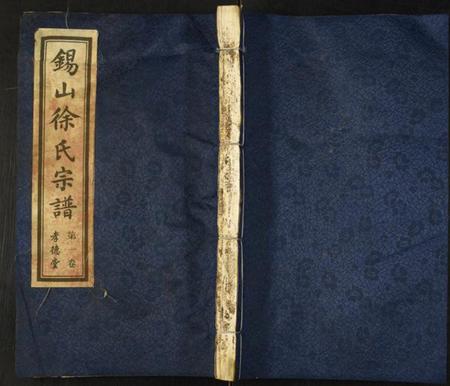 錫山徐氏宗譜
第一卷
孝德堂